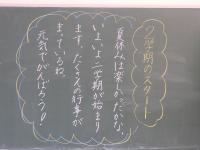 2学期のスタート
夏休みは楽しかったかな。
いよいよ二学期が始まり
ます。たくさんの行事が
まっているね。
元気でがんばろう!